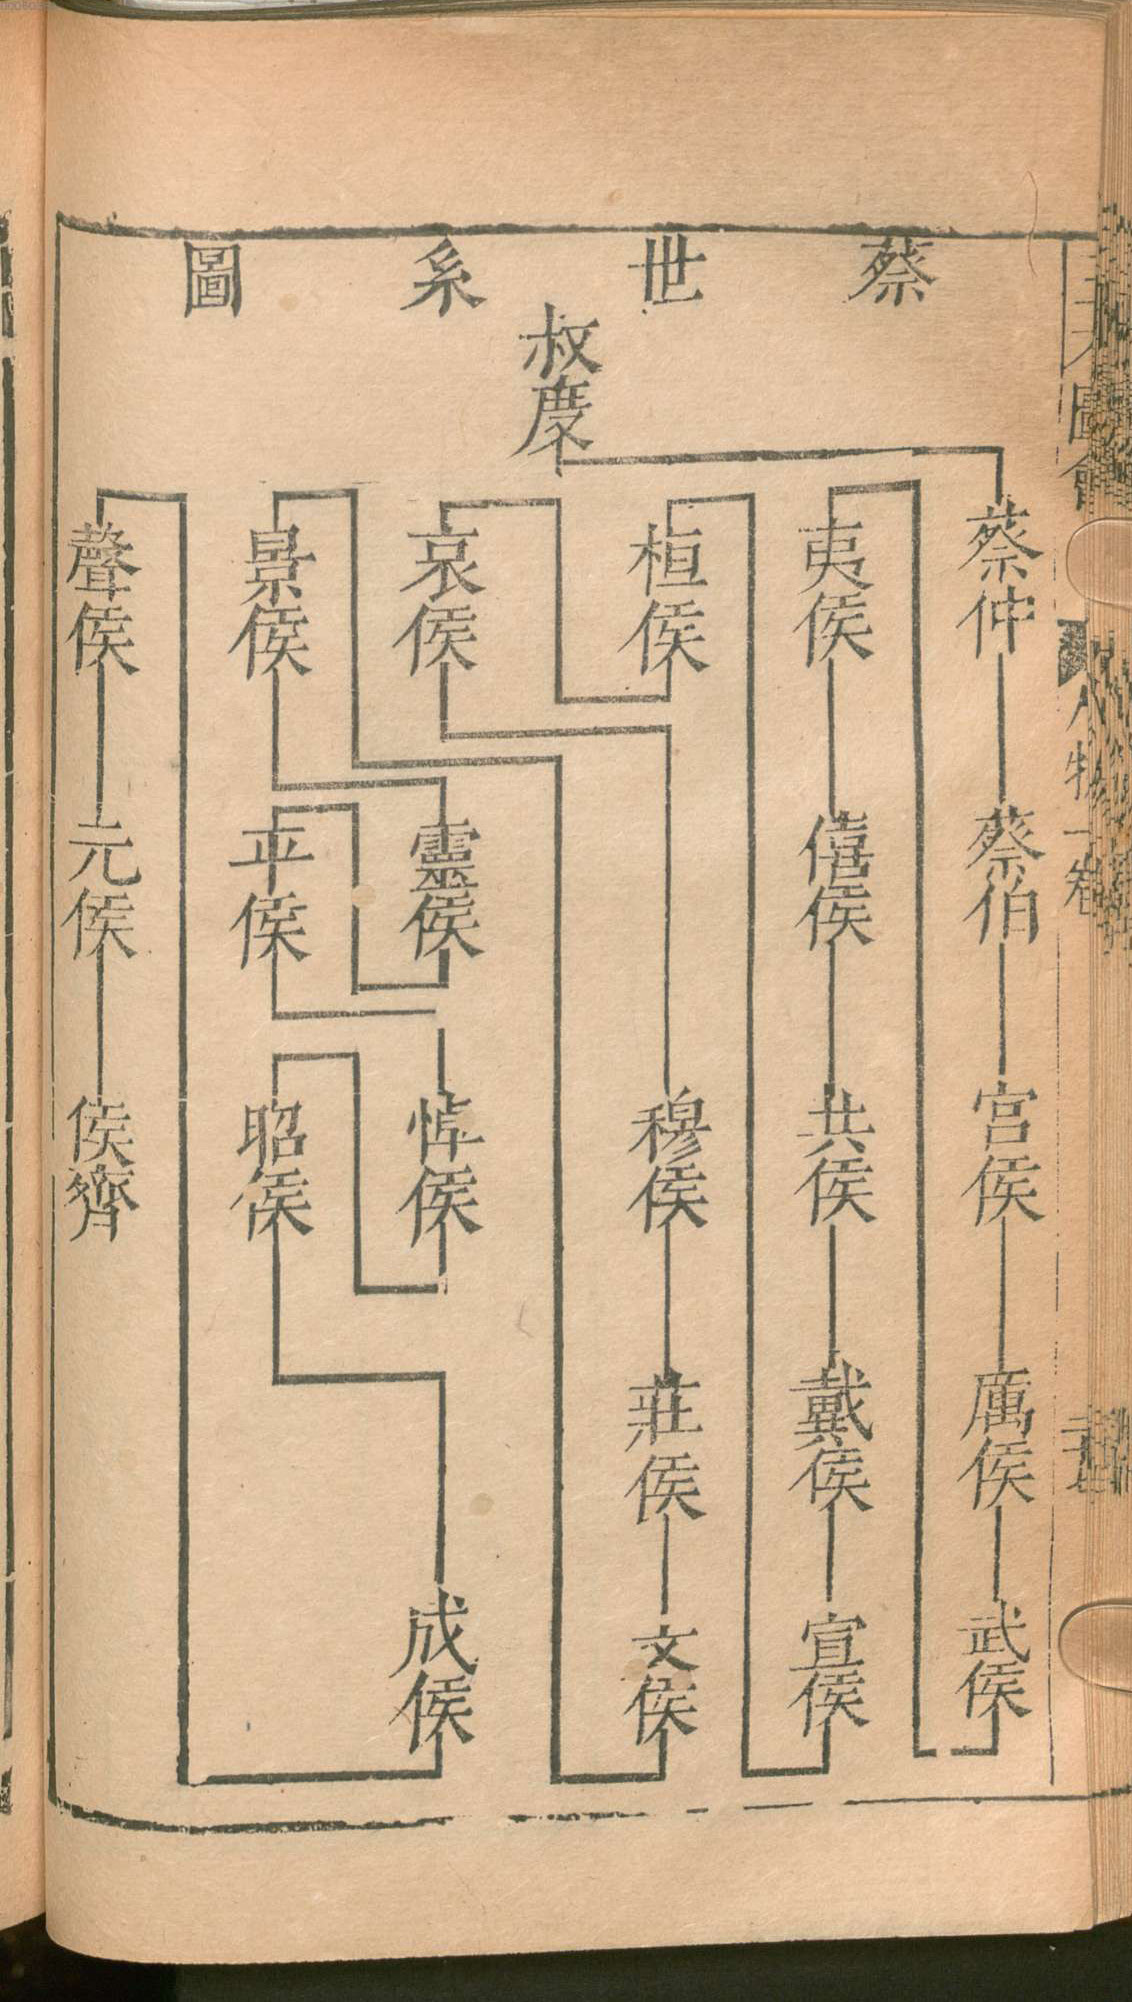 蔡世系圖
叔度
蔡仲
蔡伯
宮侯
厲侯
武侯
夷侯
僖侯
共侯
戴侯
宣侯
桓侯
哀侯
穆侯
莊侯
文侯
景侯
靈侯
平侯
悼侯
昭侯
成侯
聲侯
元侯
侯齊
圖會
人物一卷